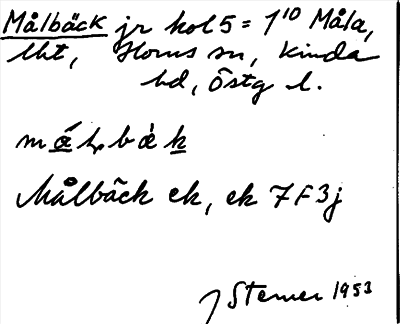 Målbäck jr kol 5 = 1/10 Måla,
lht, Horns sn, Kinda
hd, Östg l.
Målbäck ek, ek 7F3j
J Stemer 1953